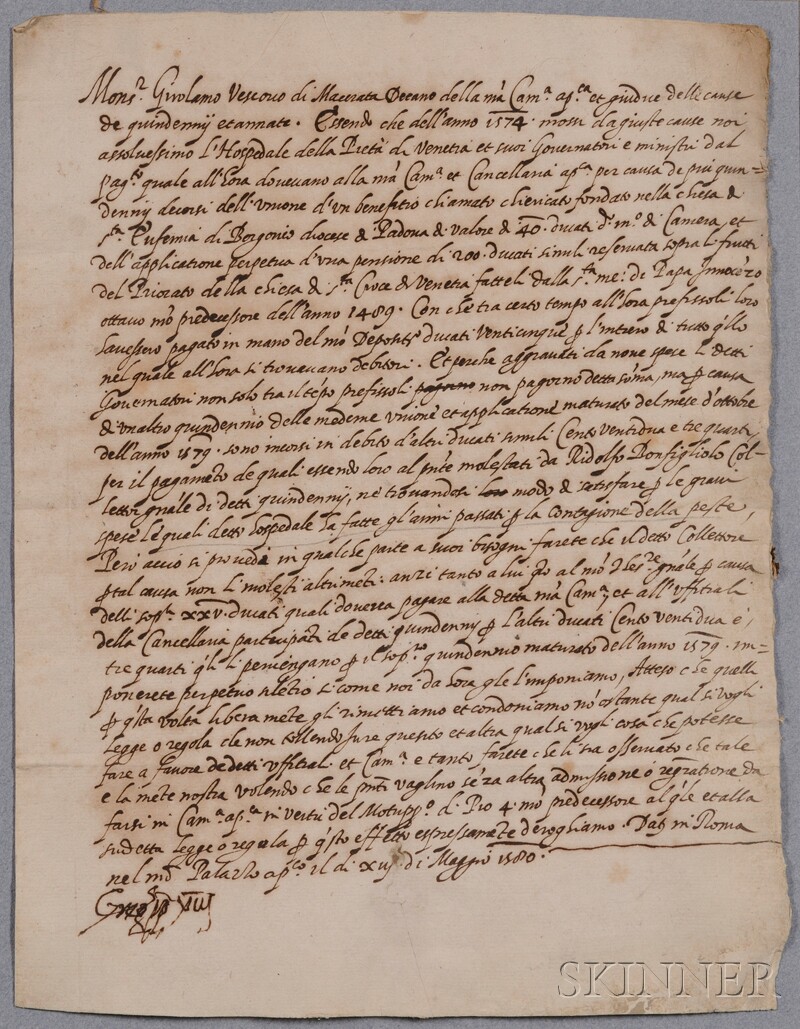 Mons.r Girolamo Vescovo di Macerata Decano della nra Cam.a ap.ca et giudice delle cause
de quindennij et annate. Essendo che dell'anno 1574. mossi da giuste cause noi
assolvessimo l'Hospedale della Pietà di Venetia et suoi Governatori e ministri dal
pag.to quale all'hora dovevano alla nrã Cam.a et Cancellaria ap.ca per causa de più quin=
dennij decorsi dell'unione d'un benefitio chiamato chiericato fondato nella chiesa di
s.ta Eufemia di Borgonio diocese di Padova di valore de 40. ducati d.i m.o di Camera, et
dell'applicatione perpetua d'una pensione di 200. ducati simili reservata sopra li frutti
del Priorato della chiesa di s.ta Croce di Venetia fatteli dalla s.ta me: di Papa Innocézo
ottavo nrõ predecessore dell'anno 1489. Con che tra certo tempo all'hora prefissoli loro
havessero pagato in mano del nrõ Deposit.o ducati venticinque p l'intiero di tutto q̃llo
nel quale all'hora si trovavano debitori. Et perche aggravati da nove spese li detti
Governatori non solo tra il tépo prefissoli pagorno non pagorno detta sõma, ma p causa
di un altro quindennio delle medeme unione et applicatione maturato del mese d'ottobre
dell'anno 1579. sono incorsi in debito d'altri ducati simili Cento ventidua e tre quarti,
per il pagaméto de quali essendo loro al pñte molestati da Ridolfo Bonfigliolo Col-
lettor gñale di detti quindennij, nè trovandosi loro modo di satisfare p le gravi
spese le quali detto hospedale ha fatte gl'anni passati p la contagione della peste,
Però acciò si proveda in qualche parte a suoi bisogni farete che il detto Collettore
p tal causa non li molesti altriméti: anzi tanto a lui q̃to al nrõ Thes.re gñale p causa
delli sop.ti xxv. ducati quali doverea pagare alla detta nrã Cam.a, et all'Uffitiali
della Cancellaria participãti de detti quindennij p l'altri ducati Cento ventidua e,
tre quarti q̃li li pervengano p il sop.to quindennio maturato dell'anno 1579. im=
ponerete perpetuo silétio si come noi da hora gle l'imponiamo, Atteso che quelli
p q̃sta volta liberaméte gli rimettiamo et condoniamo nõ ostante qual si vogli
legge o regola che non tollendo jure quesito et altra qual si vogli cosa che potesse
fare a favore de detti uffitiali et Cam.a e tanto farete che li sia osservato che tale
e la méte nostra volendo che le pñti vaglino séza altra admissione ò regratione da
farsi in Cam.a ap.ca in vertù del Motupp.o di Pio 4. nrõ predecessore al q̃le et alla
sudetta legge o regola p q̃sto effetto espressaméte deroghiamo. Dat̃ in Roma
nel nrõ Palazzo ap.co il dì xvij di Maggio 1580.
Greg. pp XIII
SKINNER